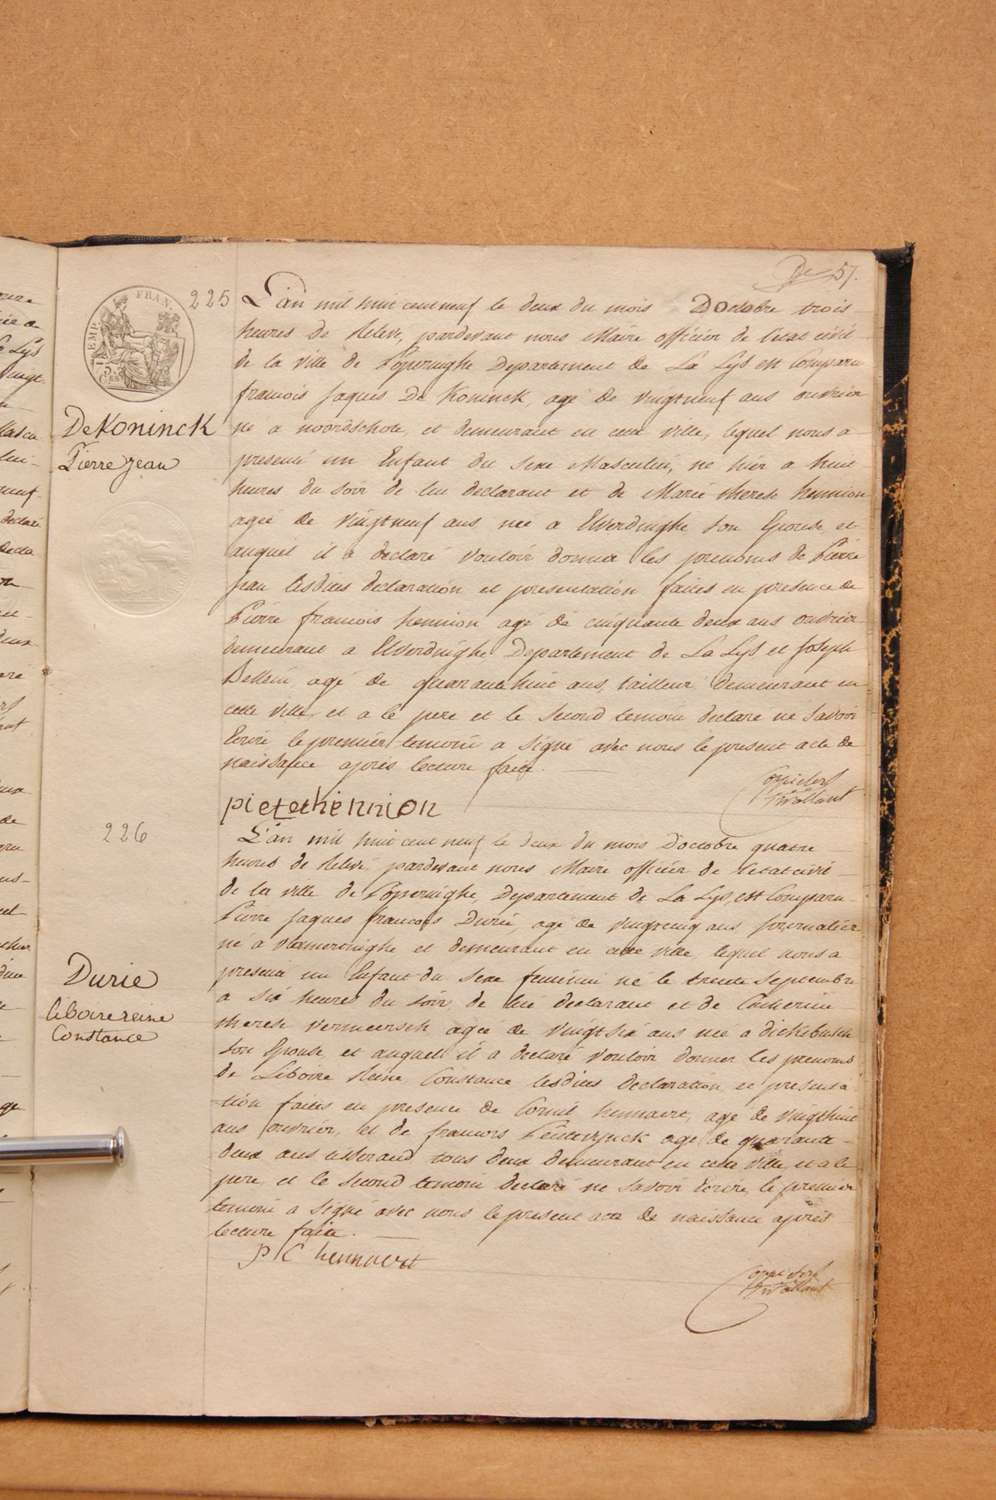 57.
EMP. FRAN.
225
DeKoninck
Pierre jean
L'an mil huit cent neuf le deux du mois Doctobre trois
heures de Relevé, pardevant nous Maire officier de l'état civil
de la ville de Poperinghe Departement de La Lys est comparu
francois Jaques De Koninck, agé de vingtneuf ans ouvrier
né a noordschote, et demeurant en cette ville, lequel nous a
presenté un Enfant du sexe Masculin, né hier a huit
heures du soir de lui declarant et de Marie therese hennion
agée de vingtneuf ans née a Elverdinghe son Epouse et
auquel il a declaré vouloir donner les prenoms de Pierre
jean lesdites declaration et presentation faites en presence de
Pierre francois hennion agé de cinquante deux ans ouvrier
demeurant a Elverdinghe Departement de La Lys et Joseph
agé de quarante huit ans, tailleur demeurant en
cette ville, et a le pere et le second temoin declaré ne savoir
Ecrire le premier temoin a signé avec nous le present acte de
naissance après lecture faite.
pieter hennion
226
Durie
liboire reine
Constance
L'an mil huit cent neuf le deux du mois D'octobre quatre
heures de Relevé, pardevant nous Maire officier de l'etat civil
de la ville de Poperinghe, Departement de La Lys, est comparu
Pierre Jaques francois Durie, agé de ans journalier
né à vlamertinghe et demeurant en cette ville lequel nous a
presenté un Enfant du sexe feminin né le trente septembre
a six heures du soir de lui declarant et de Catherine
therese vermeersch agée de vingtsix ans née a dickebusch
son Epouse et auquel il a declaré vouloir donner les prenoms
de Liboire Reine Constance lesdites declaration et presenta
tion faites en presence de Cornil hennaert, agé de vingthuit
ans ouvrier, et de francois agé de quarante
deux ans tisserand tous deux demeurant en cette ville, et a le
pere, et le second temoin declaré ne savoir ecrire le premier
temoin a signé avec nous le present acte de naissance après
lecture faite.
P C hennaert